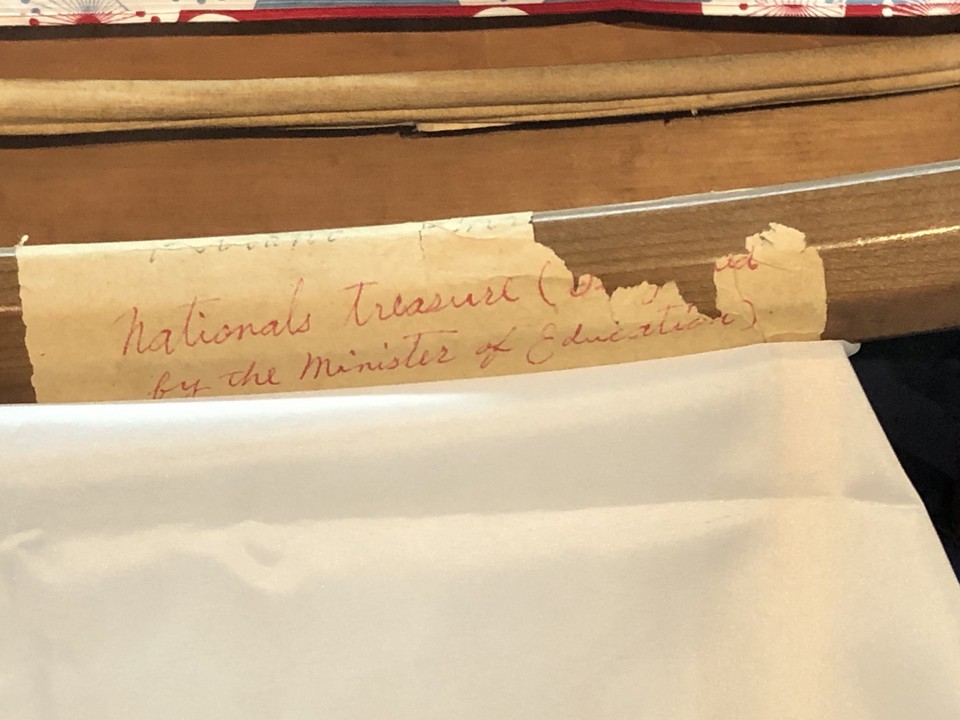 Nationals treasure (
by the Minister of Education)